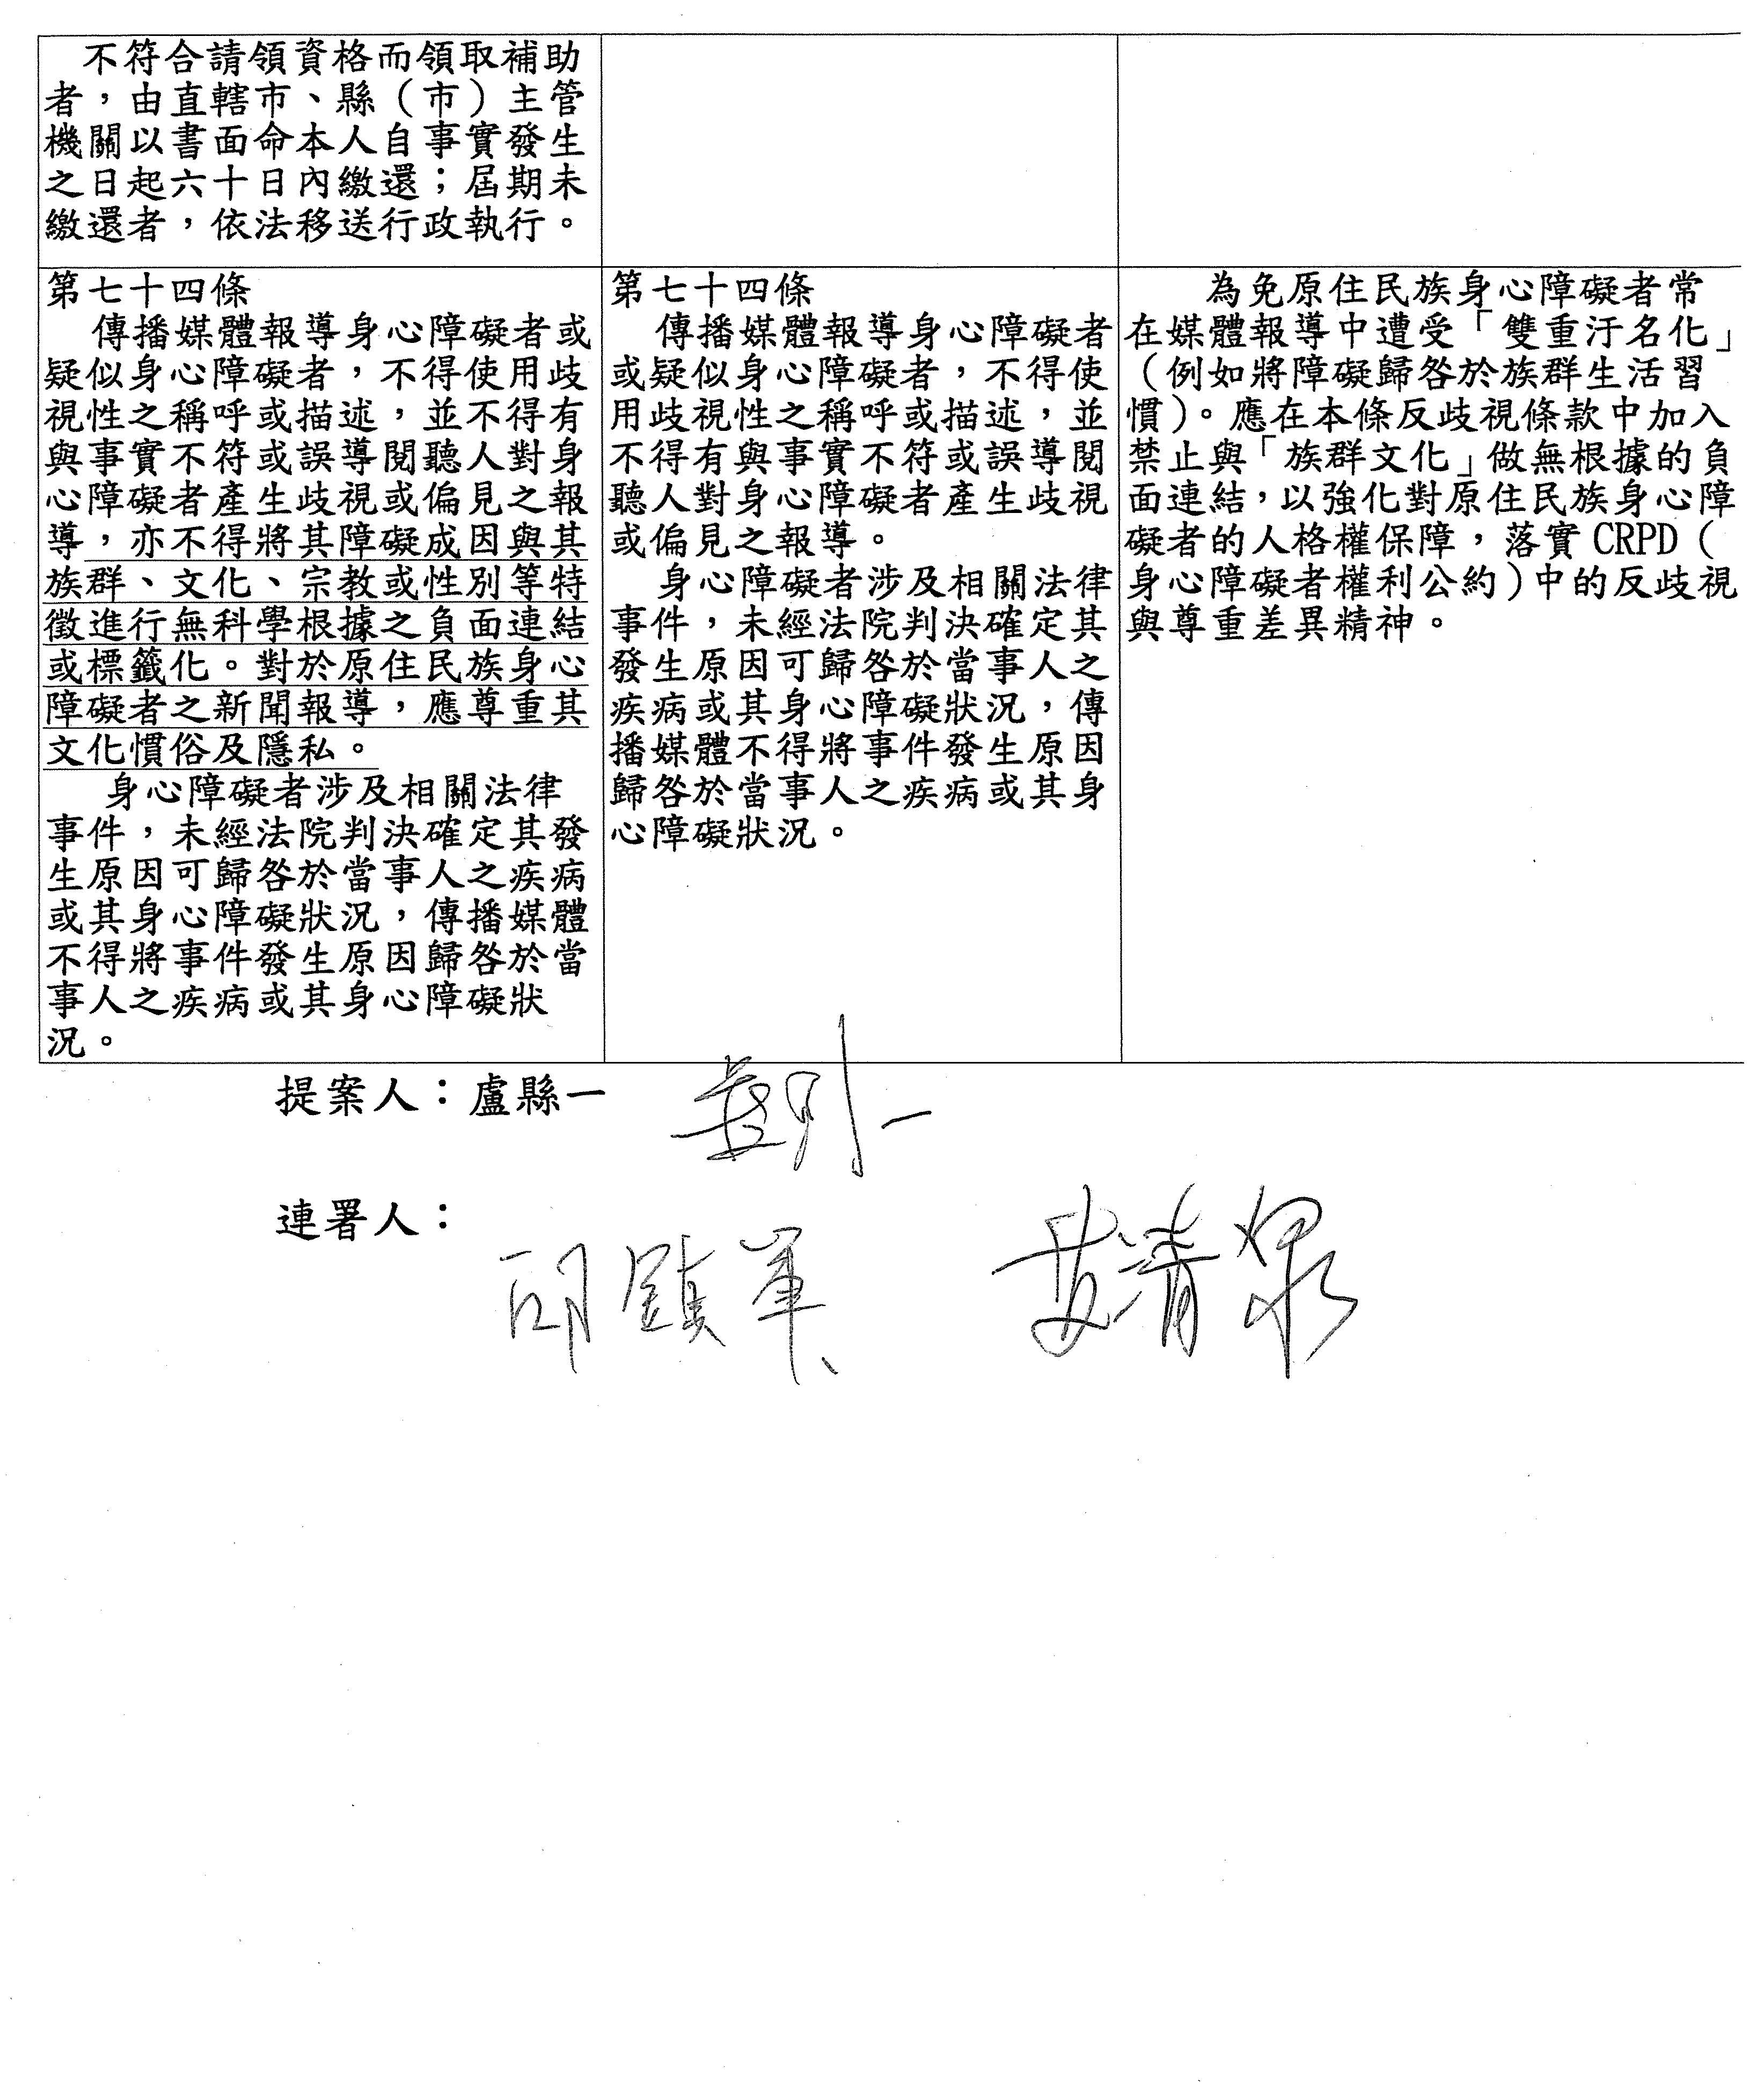 不符合請領資格而領取補助
者，由直轄市、縣（市）主管
機關以書面命本人自事實發生
之日起六十日內繳還；屆期未
繳還者，依法移送行政執行。
第七十四條
傳播媒體報導身心障礙者或
疑似身心障礙者，不得使用歧
視性之稱呼或描述，並不得有
與事實不符或誤導閱聽人對身
心障礙者產生歧視或偏見之報
導，亦不得將其障礙成因與其
族群、文化、宗教或性別等特
徵進行無科學根據之負面連結
或標籤化。對於原住民族身心
障礙者之新聞報導，應尊重其
文化慣俗及隱私。
身心障礙者涉及相關法律
事件，未經法院判決確定其發
生原因可歸咎於當事人之疾病
或其身心障礙狀況，傳播媒體
不得將事件發生原因歸咎於當
事人之疾病或其身心障礙狀
況。
第七十四條
傳播媒體報導身心障礙者
或疑似身心障礙者，不得使
用歧視性之稱呼或描述，並
不得有與事實不符或誤導閱
聽人對身心障礙者產生歧視
或偏見之報導。
身心障礙者涉及相關法律
事件，未經法院判決確定其
發生原因可歸咎於當事人之
疾病或其身心障礙狀況，傳
播媒體不得將事件發生原因
歸咎於當事人之疾病或其身
心障礙狀況。
為免原住民族身心障礙者常
在媒體報導中遭受「雙重汙名化」
（例如將障礙歸咎於族群生活習
慣）。應在本條反歧視條款中加入
禁止與「族群文化」做無根據的負
面連結，以強化對原住民族身心障
礙者的人格權保障，落實 CRPD（
身心障礙者權利公約）中的反歧視
與尊重差異精神。
提案人：盧縣一
連署人：
邱鎮軍
黃清泉